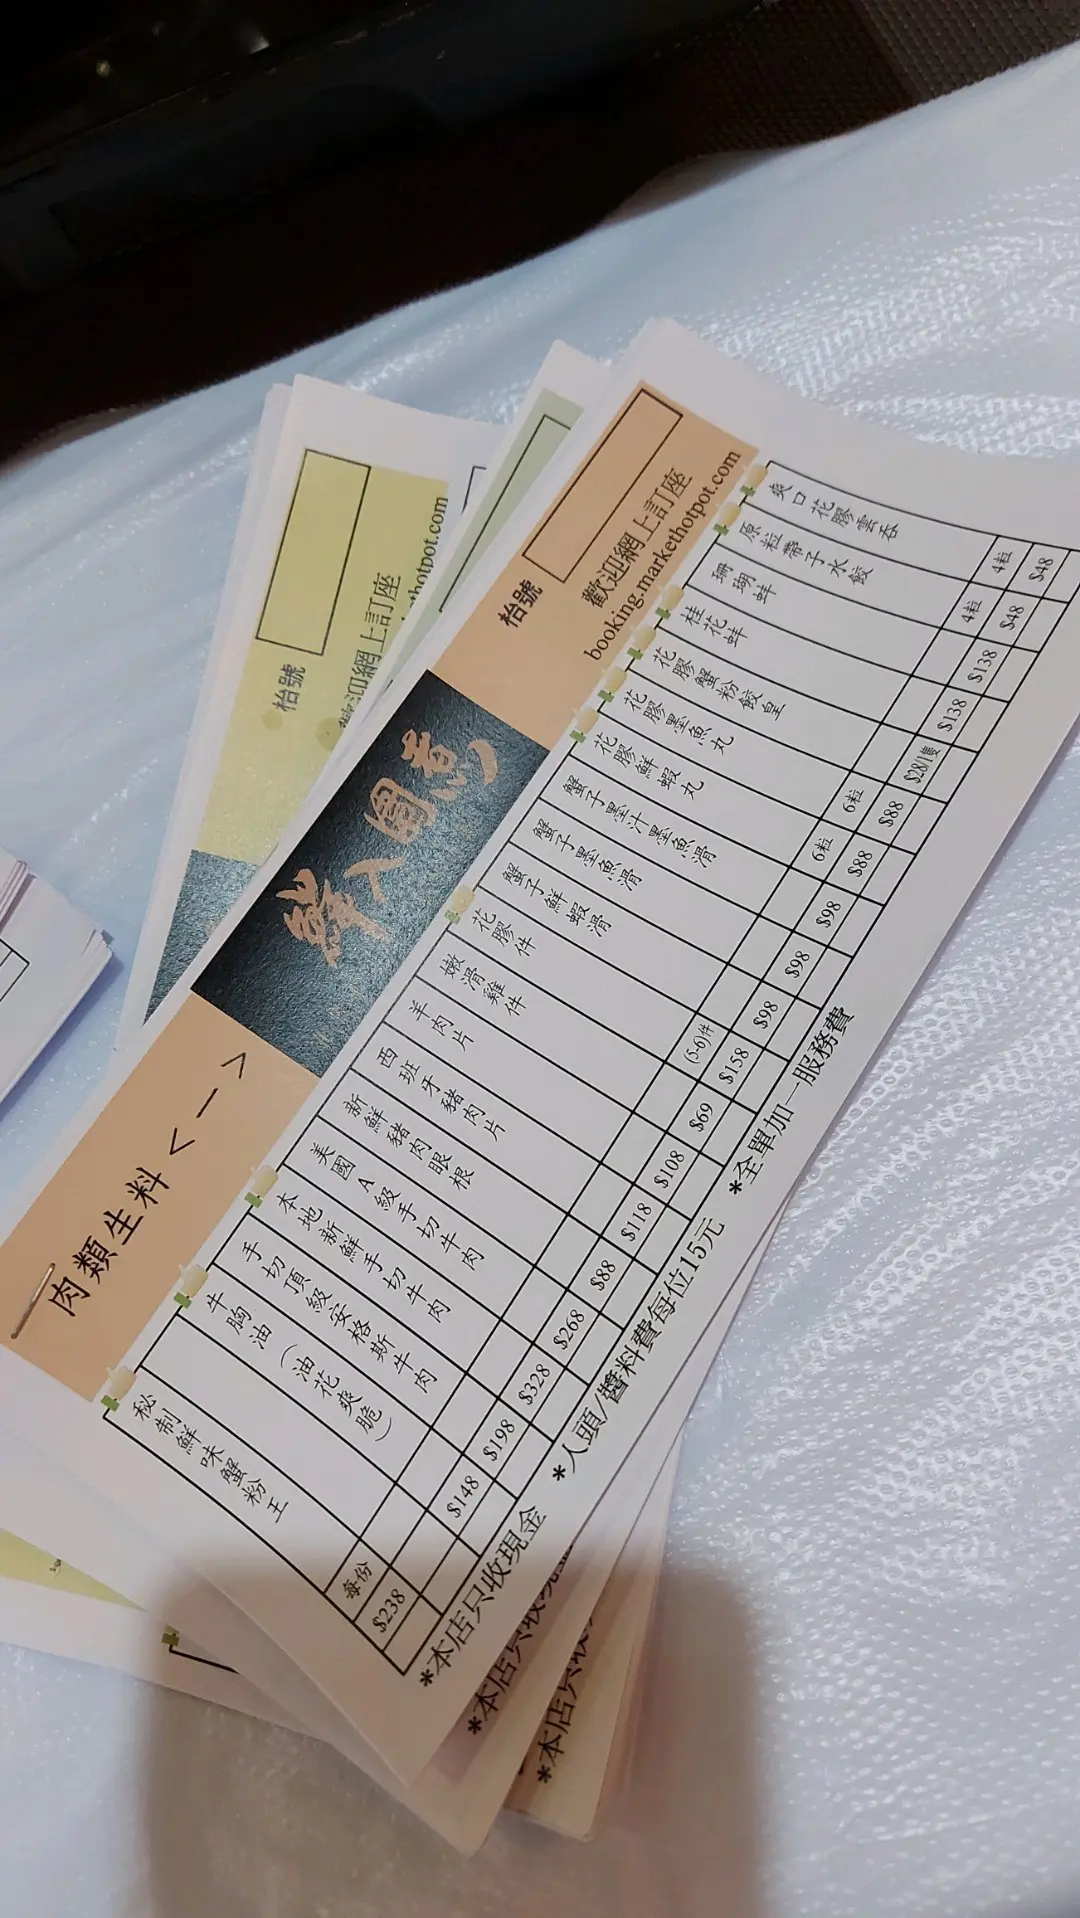 肉類生料<一>
鮮入圍煮
枱號
歡迎網上訂座
booking.markethotpot.com
秘制鮮味蟹粉王 每份 $238
牛胸油 $148
手切頂級安格斯牛肉(油花爽脆) $198
本地新鮮手切牛肉 $328
美國A級手切牛肉 $268
新鮮豬肉眼根 $88
西班牙豬肉片 $118
羊肉片 $108
嫩滑雞件 $69
花膠件 (5-6)件 $158
蟹子鮮蝦滑 $98
蟹子墨魚滑 $98
蟹子墨汁墨魚滑 $98
花膠鮮蝦丸 6粒 $88
花膠墨魚丸 6粒 $88
花膠蟹粉餃皇 $28/1隻
桂花蚌 $138
珊瑚蚌 $138
原粒帶子水餃 4粒 $48
爽口花膠雲吞 4粒 $48
*本店只收現金
*人頭/醬料費每位15元
*全單加一服務費
枱號
歡迎網上訂座
thotpot.com
*本店只收現金
*本店只收